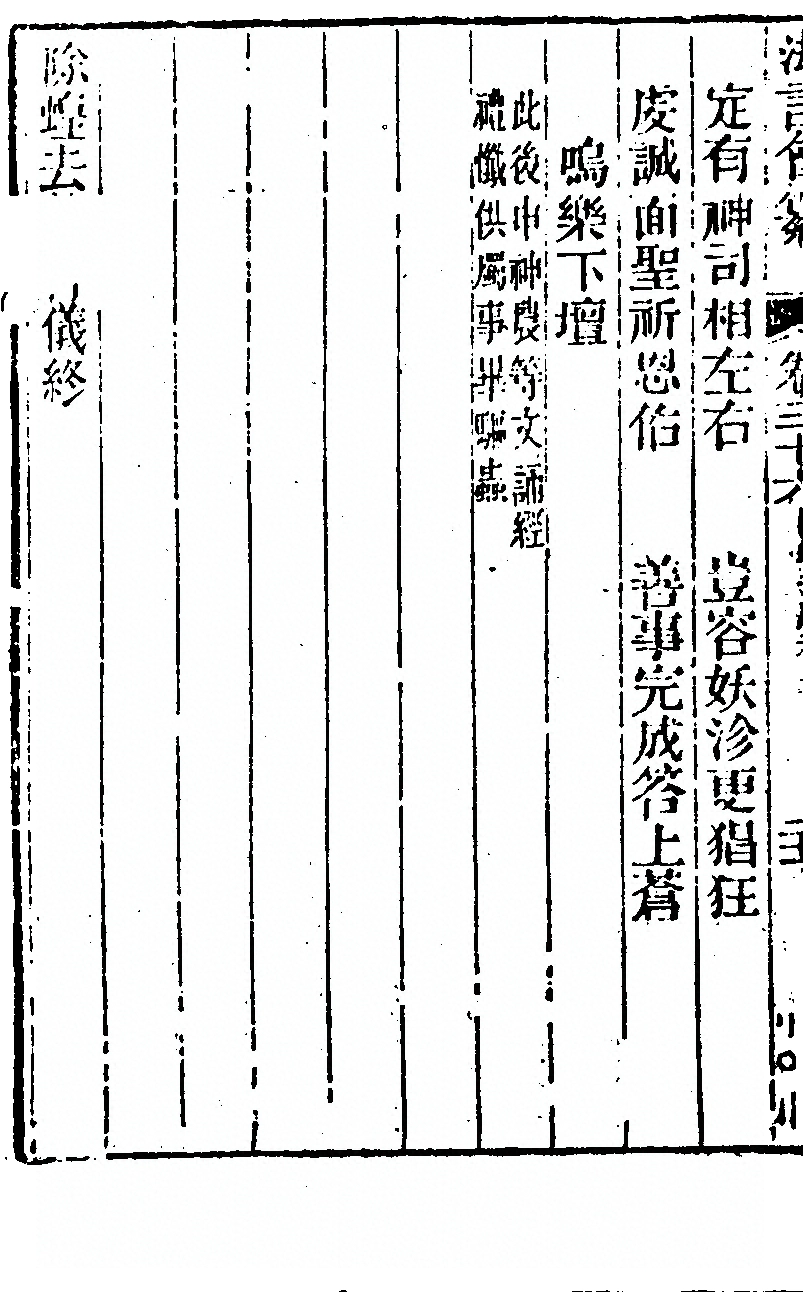 法言會纂 卷三十六
定有神司相左右 豈容妖沴更猖狂
虔誠面聖祈恩佑 善事完成答上蒼
鳴樂下壇
此後申神農等文誦經
禮懺供燭事畢驅蟲
除蝗去 儀終